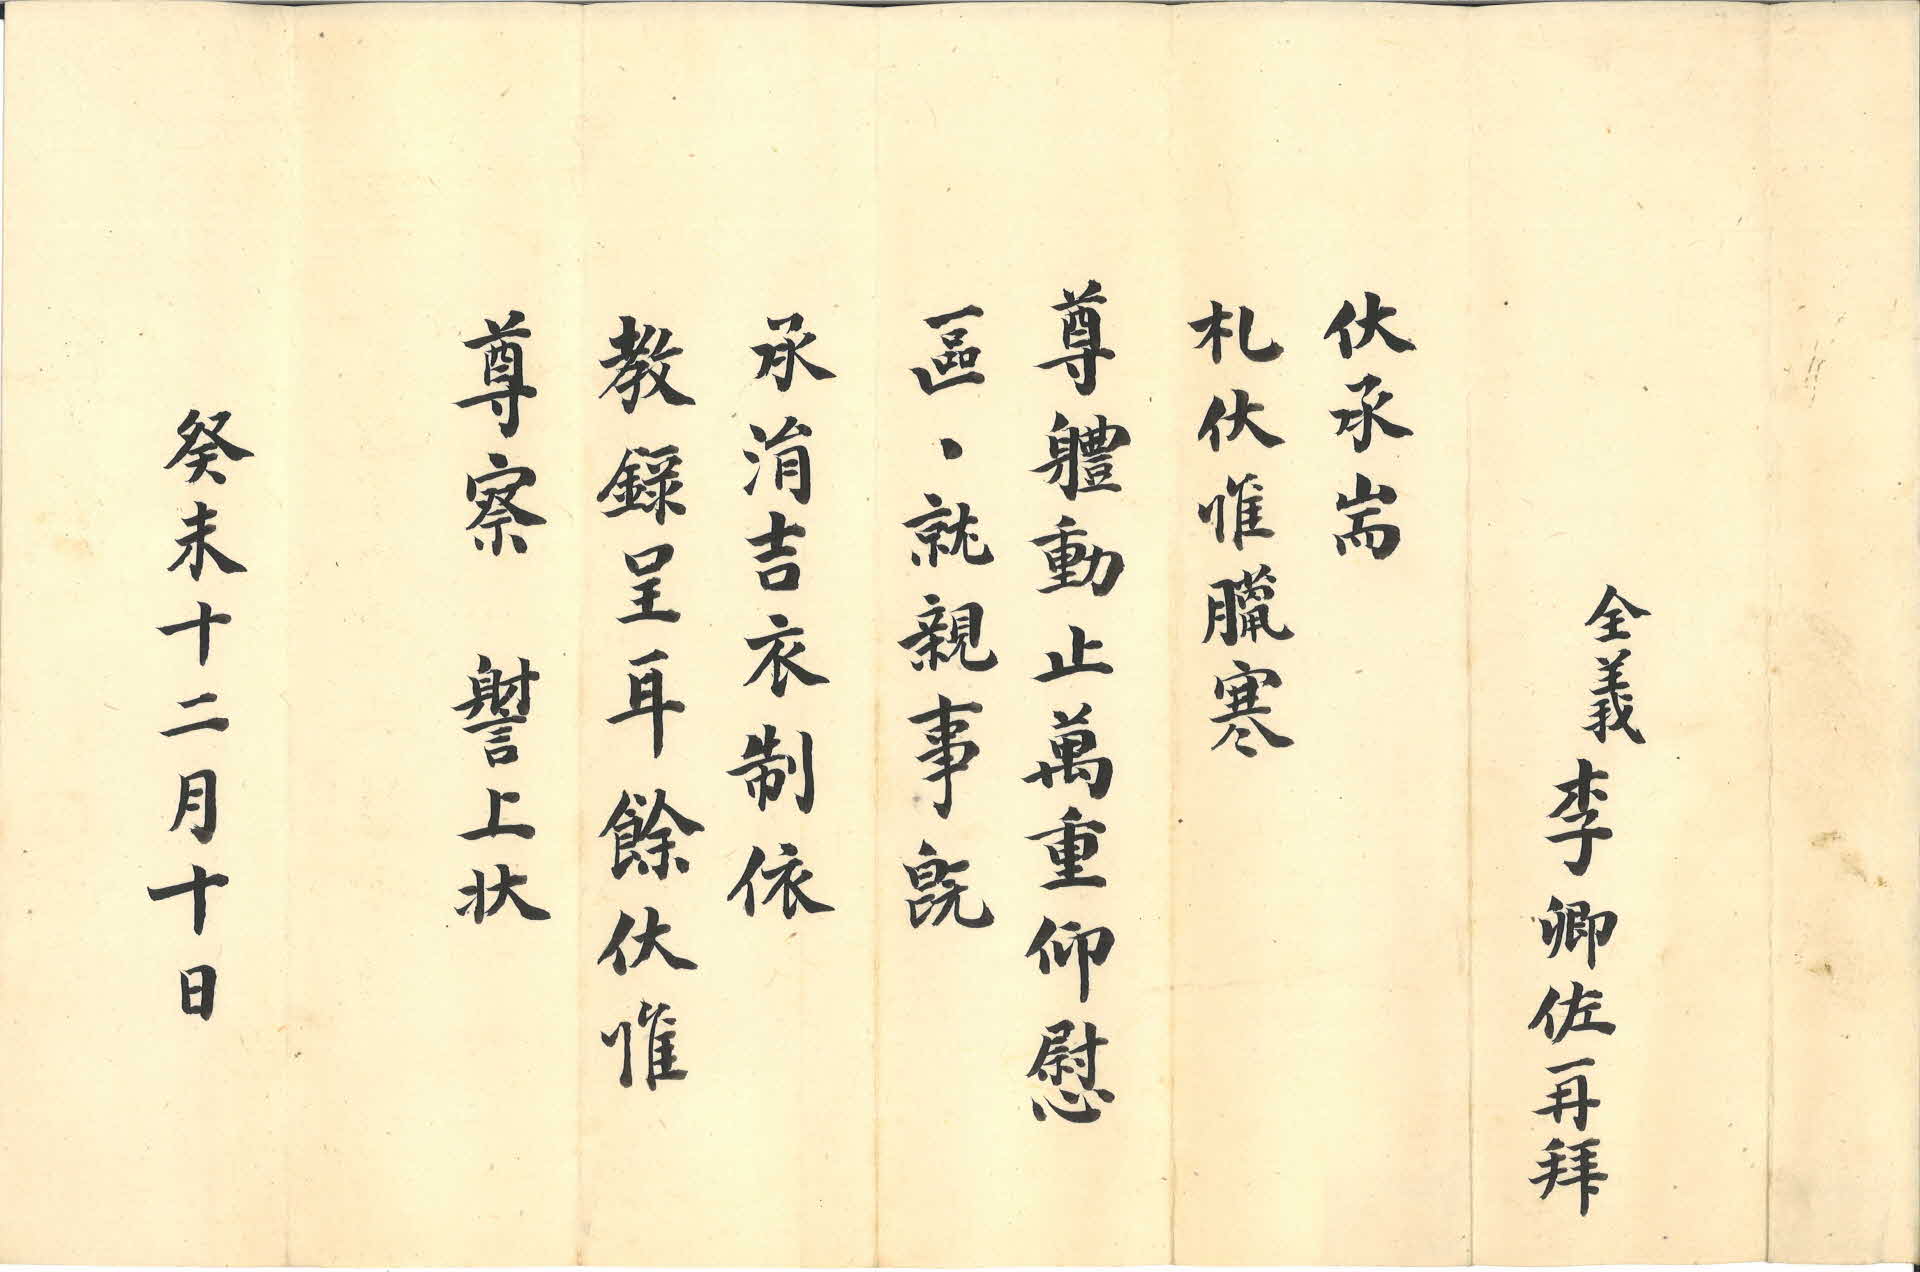 全義李卿佐再拜
伏承耑
札伏惟臘寒
尊體動止萬重仰慰
區〻就親事旣
承涓吉衣制依
教錄呈耳餘伏惟
尊察 謝上狀
癸未十二月十日